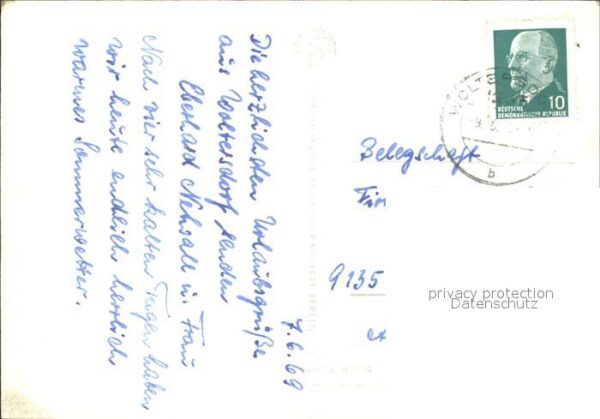 7.6.69
Die herzlichsten Urlaubsgrüße
aus Woltersdorf senden
Eberhard u. Frau
Nach vier sehr kalten Tagen haben
wir heute endlich herrlich
warmes Sommerwetter.
10
DEUTSCHE
DEMOKRATISCHE REPUBLIK
WOLTERSDO
b
Belegschaft
Fir
9135
privacy protection
Datenschutz